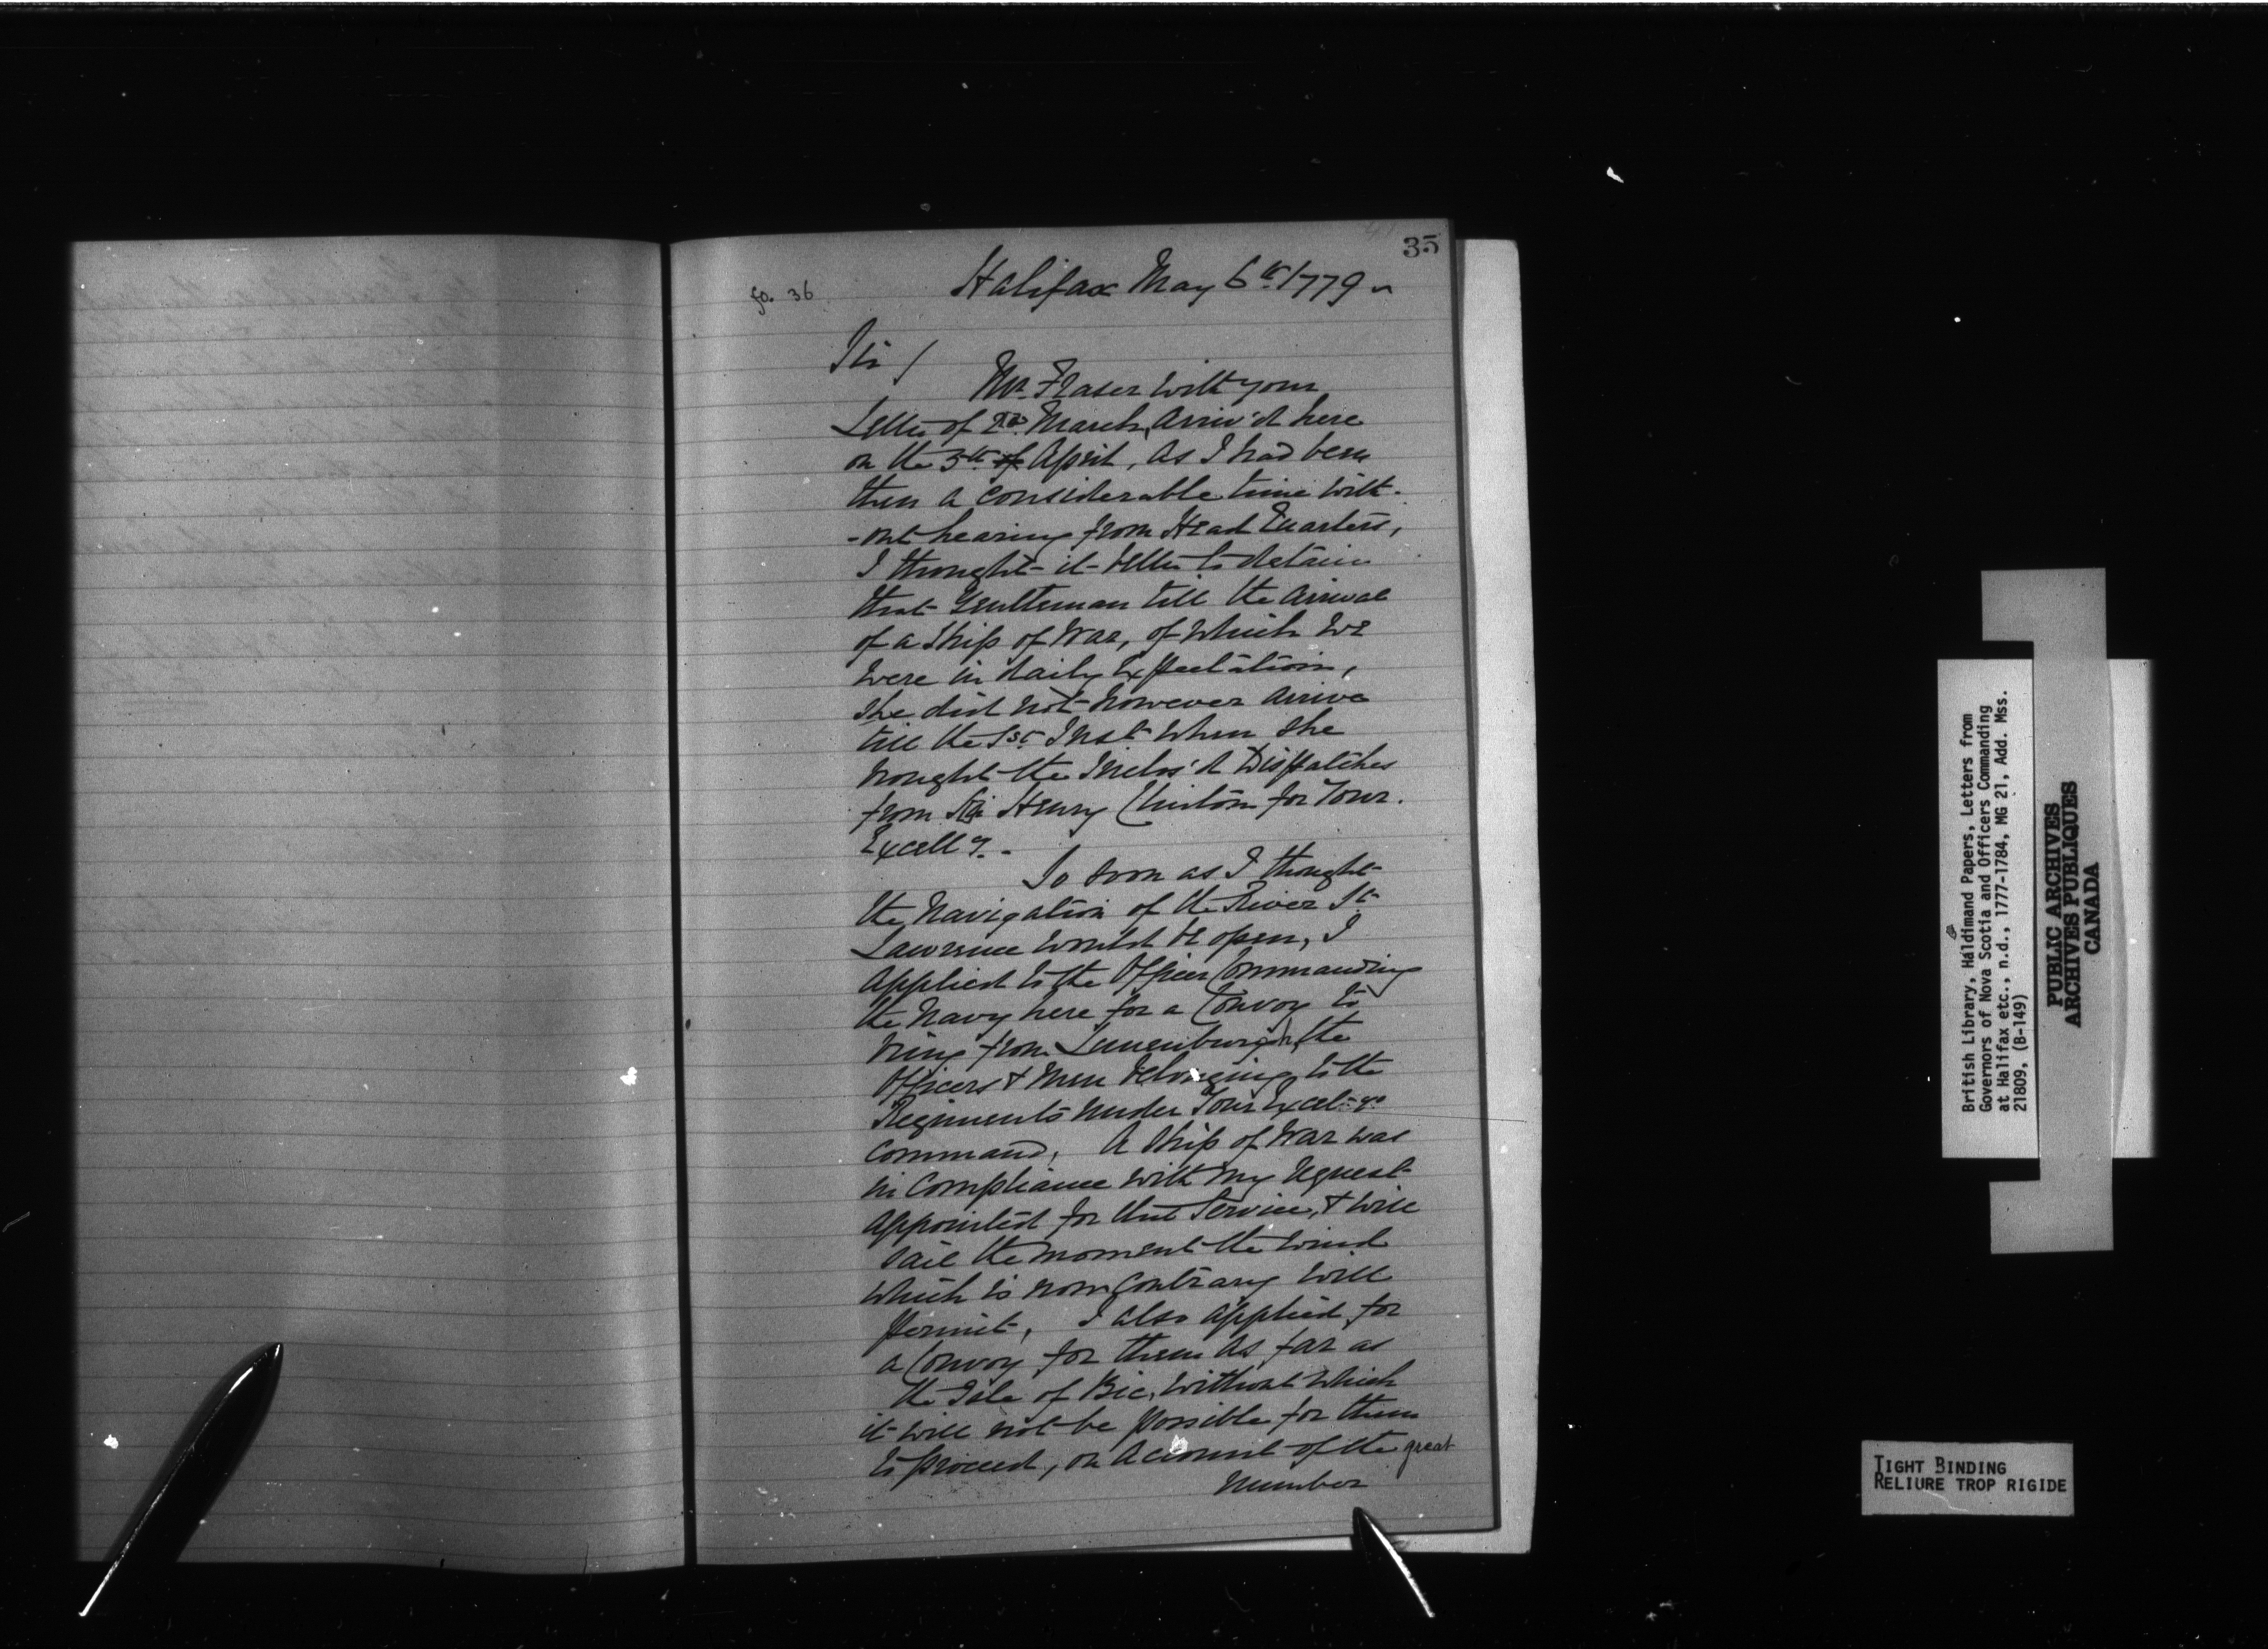 35
fo. 36
Halifax May 6th. 1779
Sir /
Mr. Fraser with your
Letter of 2d. March, Arriv'd here
on the 5th of April, As I had been
then a Considerable time with-
-out hearing from Head Quarters,
I thought it better to detain
that Gentleman till the Arrival
of a Ship of War, of which we
were in daily Expectation,
She did not however arrive
till the 1st. Inst when She
brought the Inclos'd Dispatches
from Sir Henry Clinton for Your
Excelly. -
So soon as I thought
the Navigation of the River St.
Lawrence would be open, I
applied to the Officer Commanding
the Navy here for a Convoy to
bring from Lunenburgh, the
Officers & Men belonging to the
Regiments under Your Excel-ys
Command, A Ship of War was
in Compliance with my request
appointed for that Service, & will
sail the moment the wind
which is now Contrary will
permit, I also applied for
a Convoy for them As far as
the Isle of Bic, without which
it will not be possible for them
to proceed, on Account of the great
Number
British Library, Haldimand Papers, Letters from
Governors of Nova Scotia and Officers Commanding
at Halifax etc., n.d., 1777-1784, MG 21, Add. Mss.
21809, (B-149)
PUBLIC ARCHIVES
ARCHIVES PUBLIQUES
CANADA
TIGHT BINDING
RELIURE TROP RIGIDE